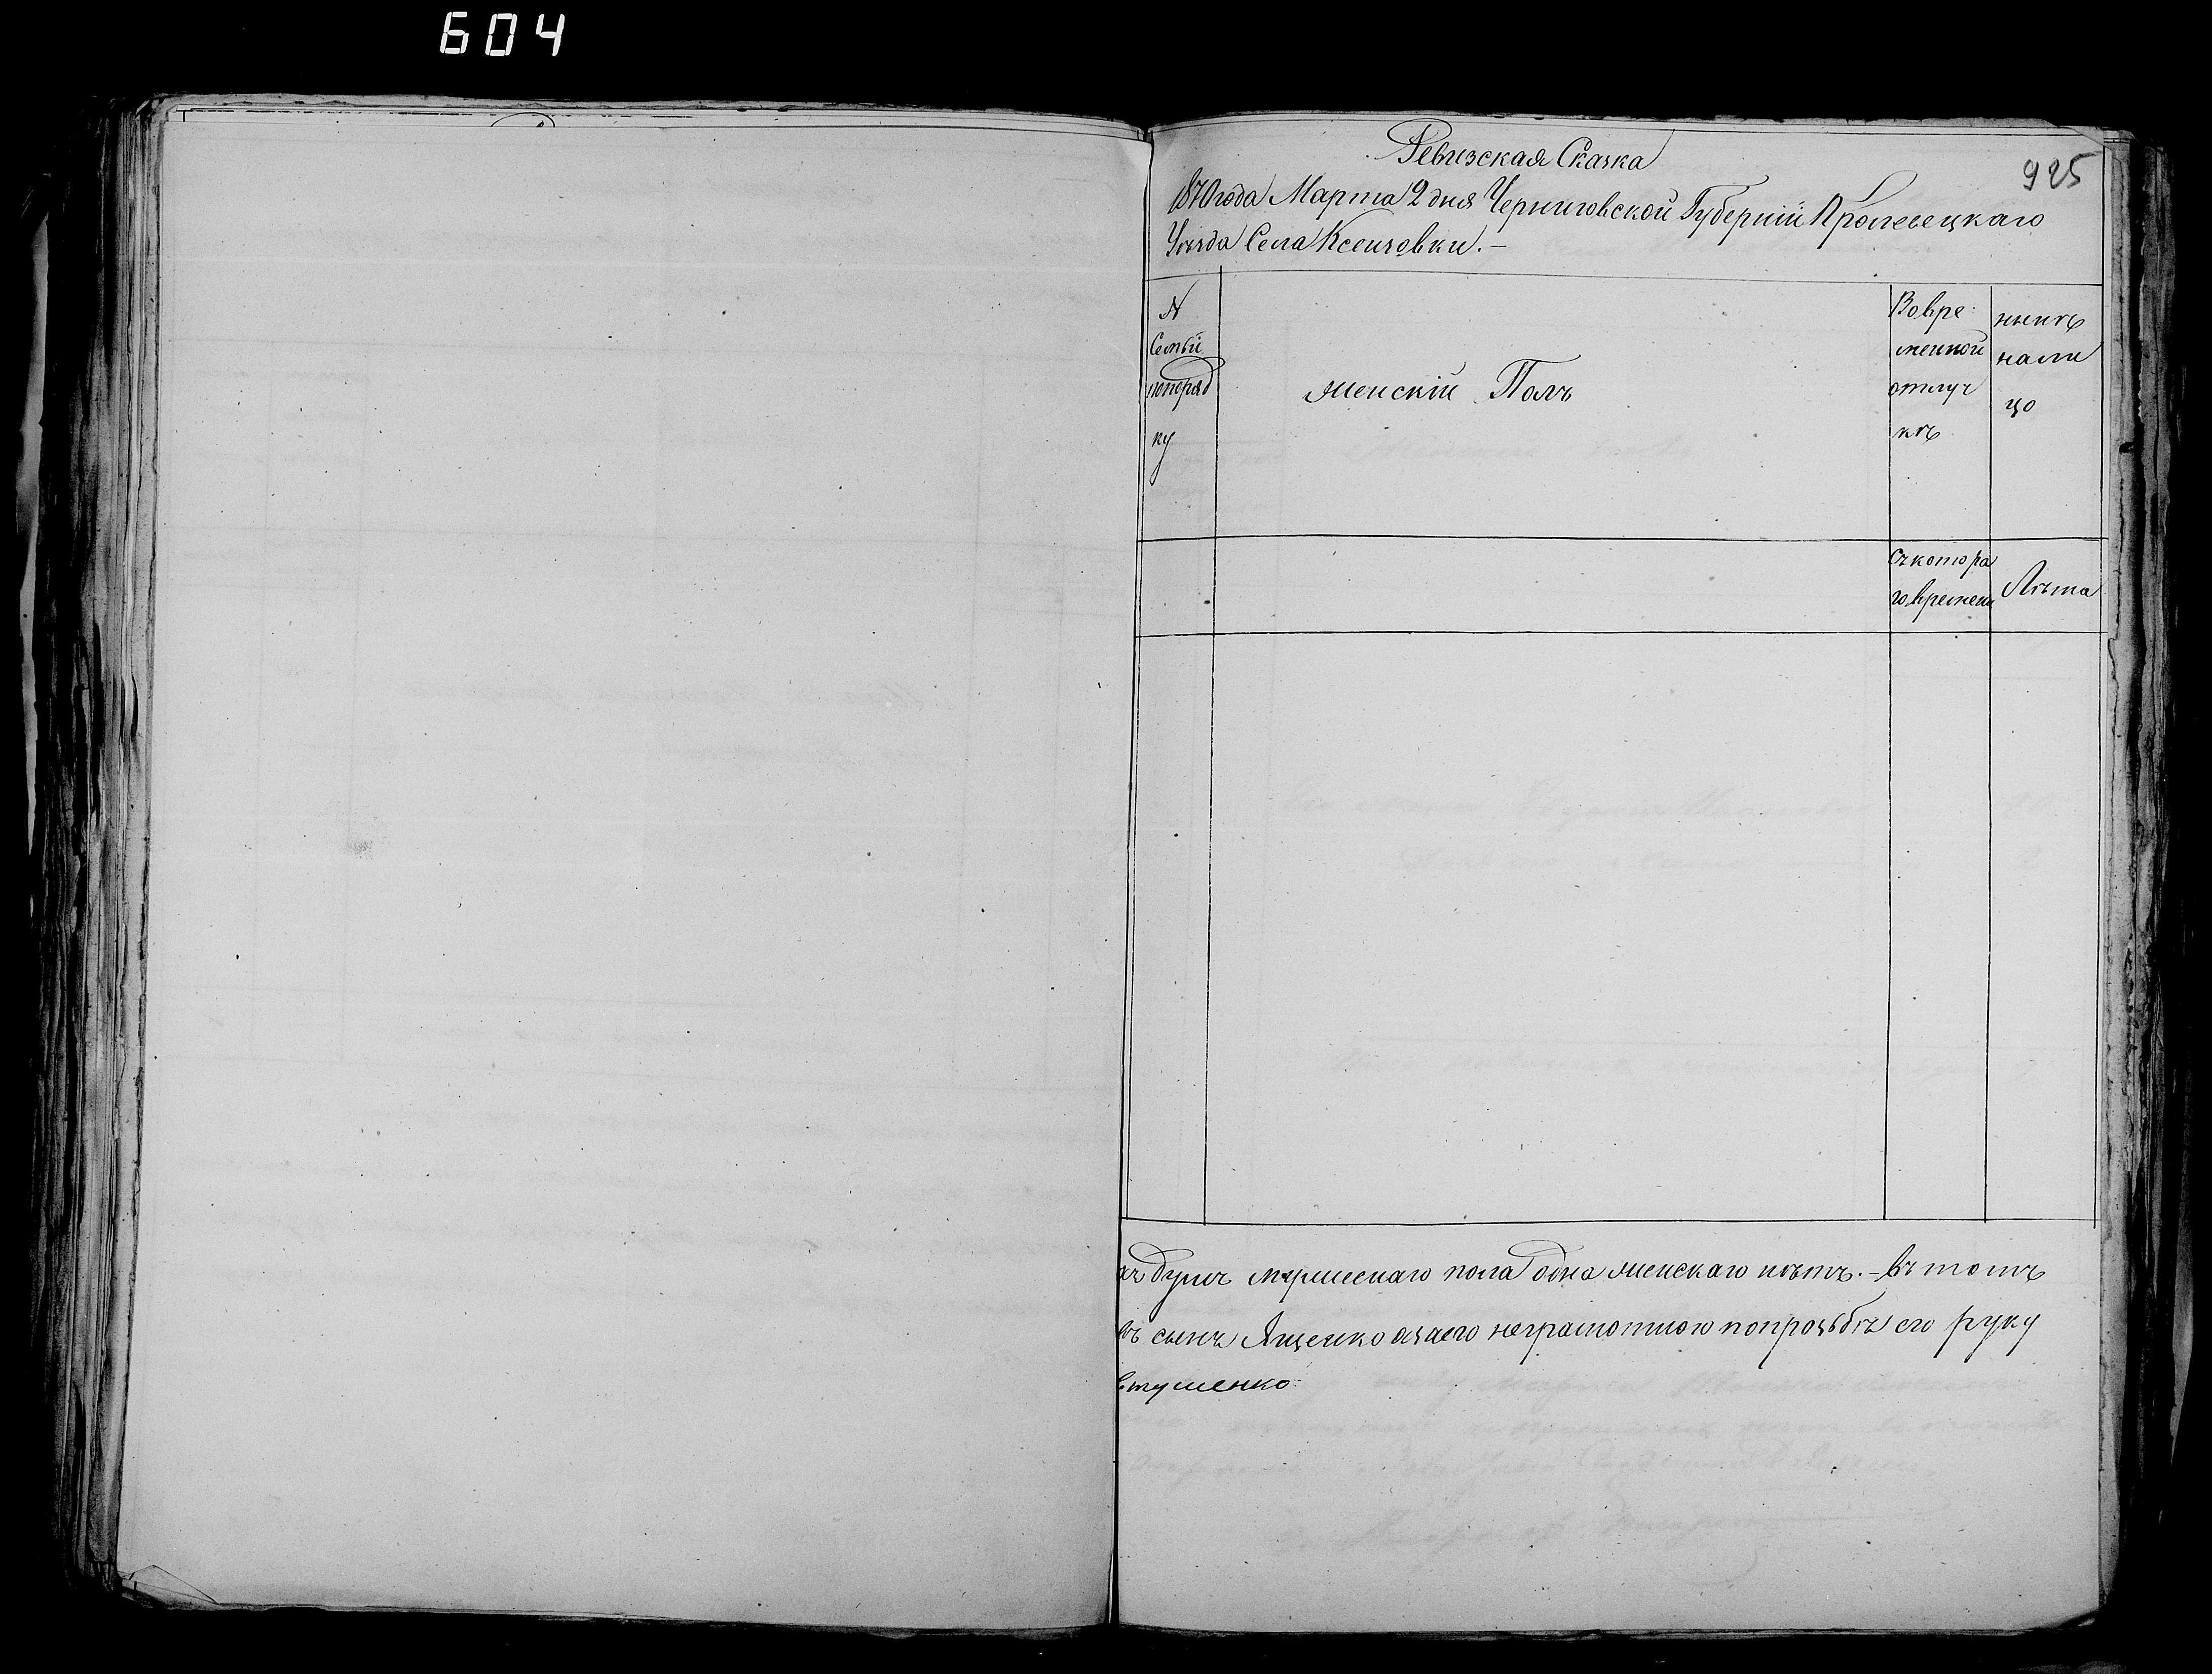 604
925
Ревизская Сказка
1870 года Марта 2 дня Черниговской Губерніи Кролевецкаго
Уѣзда Села Ксензовки.-
N
Семьи
попоряд
ку
женскій Полъ
Во вре
менной
отлуч
кѣ
нынѣ
нали
цо
съ котора
го времени
Лѣта
душъ мужескаго пола одна женскаго нѣтъ.- Въ томъ
сынъ Ященко а за его неграмотного по прозьбѣ его руку